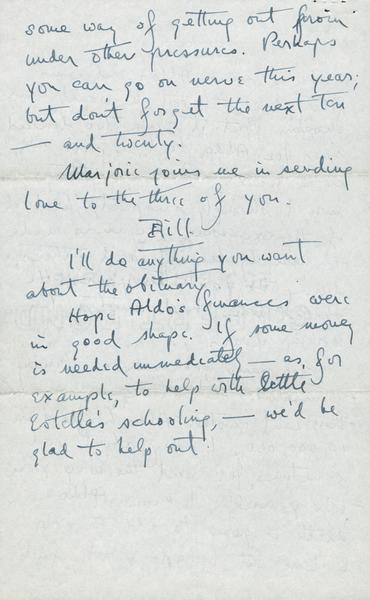 some way of getting out from
under other pressures. Perhaps
you can go on nerve this year;
but don't forget the next ten
— and twenty.
Marjorie joins me in sending
love to the three of you.
Bill
I'll do anything you want
about the obituary.
Hope Aldo's finances were
in good shape. If some money
is needed immediately — as, for
example, to help with little
Estella's schooling, — we'd be
glad to help out.